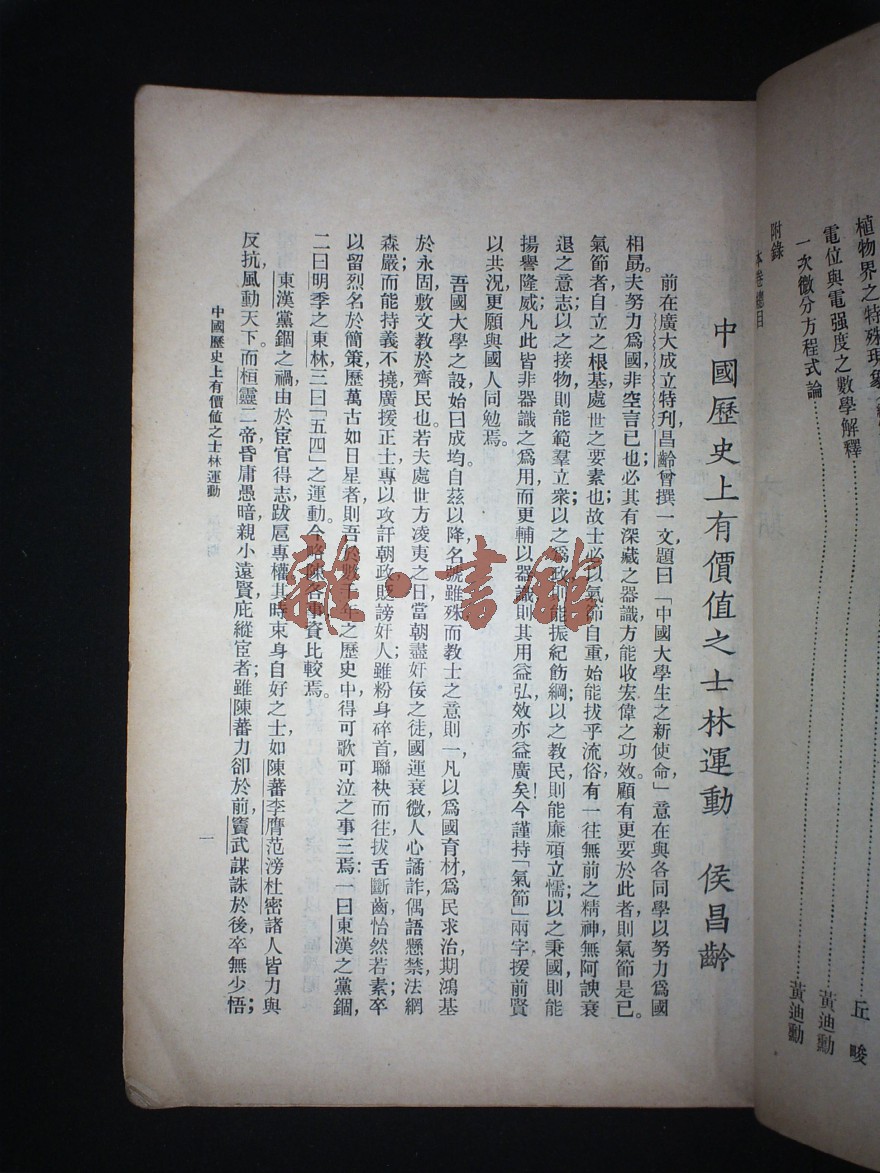 植物界之特殊現象
電位與電强度之數學解釋……丘 畯
一次微分方程式論……黃迪勳
黃迪勳
附錄
本卷總目
中國歷史上有價值之士林運動 侯昌齡
前在廣大成立特刋,昌齡曾撰一文,題曰「中國大學生之新使命」意在與各同學以努力爲國
相勗。夫努力爲國,非空言已也,必其有深藏之器識,方能收宏偉之功效。顧有更要於此者,則氣節是已。
氣節者,自立之根基,處世之要素也;故士必以氣節自重,始能拔乎流俗,有一往無前之精神,無阿諛衰
退之意志;以之接物,則能範羣立衆;以之爲政,則能振紀飭綱;以之教民,則能廉頑立懦;以之秉國,則能
揚譽隆威;凡此皆非器識之爲用,而更輔以器識,則其用益弘,效亦益廣矣!今謹持「氣節」兩字,援前賢
以共況,更願與國人同勉焉。
吾國大學之設,始曰成均。自茲以降,名號雖殊,而教士之意則一,凡以爲國育材,爲民求治,期鴻基
於永固,敷文教於齊民也。若夫處世方凌夷之日,當朝盡奸佞之徒,國運衰微,人心譎詐,偶語懸禁,法網
森嚴;而能持義不撓,廣援正士,專以攻訐朝政,貶謗奸人;雖粉身碎首,聯袂而往,拔舌斷齒,怡然若素,卒
以留烈名於簡策,歷萬古如日星者,則吾於數千年之歷史中,得可歌可泣之事三焉:一曰東漢之黨錮,
二曰明季之東林,三曰「五四」之運動。今略陳各事,資比較焉。
東漢黨錮之禍,由於宦官得志,跋扈專權,其時束身自好之士,如陳蕃李膺范滂杜密諸人,皆力與
反抗,風動天下。而桓靈二帝,昏庸愚暗,親小遠賢,庇縱宦者;雖陳蕃力卻於前,竇武謀誅於後,卒無少悟;
中國歷史上有價值之士林運動
一
雜·書館